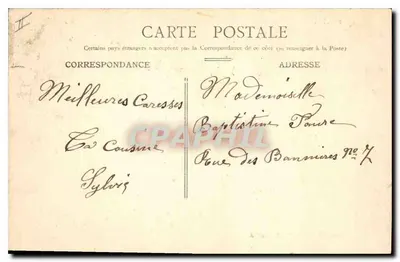 II
CARTE POSTALE
Certains pays étrangers n'acceptent pas la Correspondance de ce côté (se renseigner à la Poste)
CORRESPONDANCE
ADRESSE
Meilleures Caresses
Ta Cousine
Sylvie
Mademoiselle
Baptistine Faure
Rue des Bannières no 7
CPAPHIL